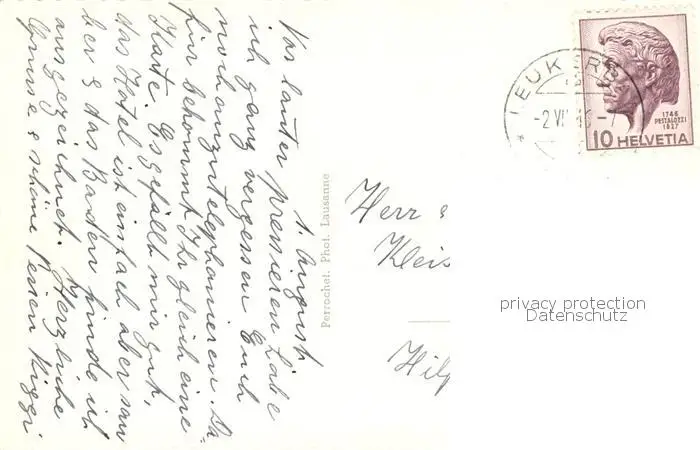 1. August
Vor lauter pressieren habe
ich ganz vergessen Euch
noch anzutelephonieren. Da-
für bekommt Ihr gleich eine
Karte. Es gefällt mir gut,
das Hotel ist einfach aber sau
ber & das Baden finde ich
ausgezeichnet. Herzliche
Grüsse & schöne Ferien
Perrochet. Phot. Lausanne
Herr &
Hilf
LEUKER
-2 VI
1746
PESTALOZZI
1827
10 HELVETIA
privacy protection
Datenschutz